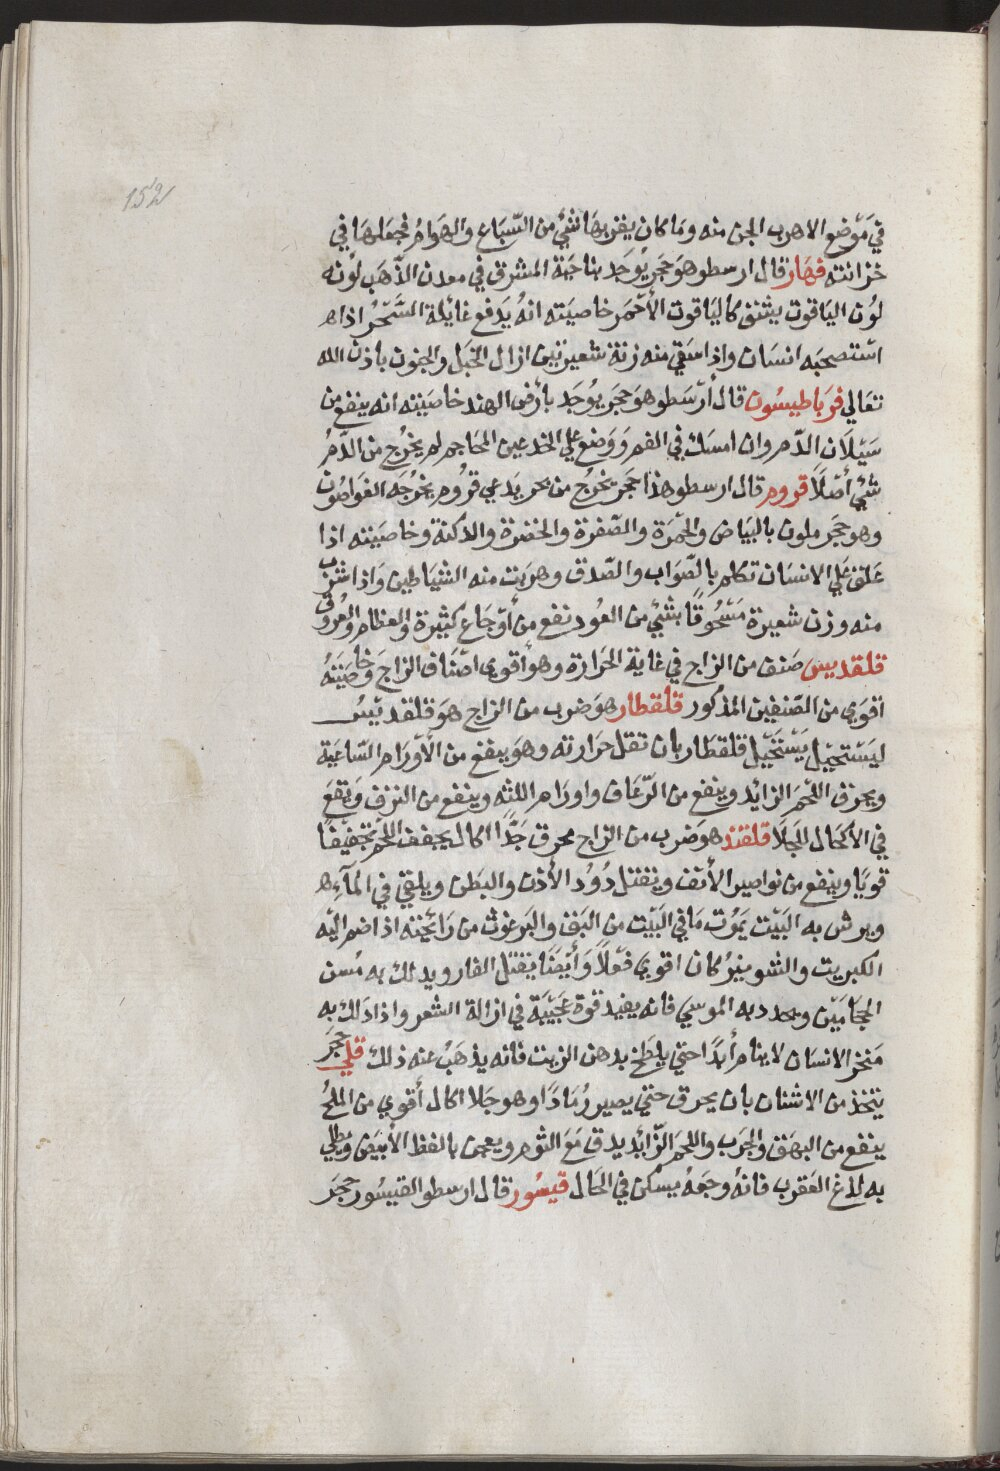 152
في مَوْضع الا هرب الجن منه ومَا كان يقربهَا شئ من السّبَاع والهوَامُ فجعلهَا في
خزانته فهَار قال ارسطو هوَ حَجر يوُجَد بناحيَة المشرق في معدن الذّهَب لوُنه
لوُن اليَاقوت يشف كاليَاقوت الأحْمَر خاصيَته انهُ يَدفع غايُلة السَّحْر اذا
اسْتصحبَه انسَان واذا سَقي منه زنة شعيرتين ازال الخبَل والجنون باذن الله
تعَالي فرَباطيسُون قال أرْسَطو هوَ حجَر يوُجَد بأرْض الهند خاصَيَته انه ينفع من
سَيَلَان الدّم وان امسَك في الفم ووَضع علي اخدعين المحَاجم لم يخرُج من الدّمُ
شئ أصْلاً قروم قال ارسطو هذا حَجر يخرُج من بحر يَدعي قرُوم يخرُجَه الغوَاصُون
وهو حجَر ملون بالبيَاض والحمْرَة والصّفرة والخضرة والدكنة وخاصيَته اذا
عَلق عَلي الانسَان تكلم بالصّوَاب والصّدق وهرَبت منه الشيَاطين وَاذا شرب
منه وزن شعيرة مَسْحُوقًا بشئ من العُود نفع من أوْجَاع كثيرة والعظام والعُروُق
قلقديس صَنف من الزاج في غاية الحَرارة وهو أقوي اصْنَاف الزاج وَخاصيَتهُ
اقوَي من الصّنفين المذكور قلقطار هوَ ضرب من الزاج هوَ قلقديسُ
ليسْتحيْل يَسْتحَيْل قلقطَار بان تقل حرَارته وهوَ ينفع من الأوْرَام السّاعيَة
ويحرق اللّحمَ الزايُد وينفع من الرّعَاف واورَام اللثه وينفع من النزف وَيقعَ
في الأكحَال الجَلَا قلقند هوَ ضرب من الزاج محرق جَدًّا اكال يجفف اللحمْ تجفيفًا
قويَا وينفع من نواصير الأنف ويقتل دُوُد الأذن والبطن ويلقي في المآء
ويرش به البَيْت يمَوُت مَا في البَيْت من البَق والبَرغوث من رَائحته اذا ضم اليْه
الكبريت والشونيز كان اقوي فعْلاً وَأيْضًا يقتل الفار ويدلك به مُسن
الحجَامَين ويحدد به الموسي فانه يفيد قوة عجيْبَة في ازالة الشعر واذا دَلك به
مَنخر الانسَان لا ينام أبدًا حتي يلطَخ بدهن الزيت فانه يذهَبُ عنه ذلك قلي حَجَر
يتخذ من الاشنان بان يحرق حتي يصير رُمَادًا وهو جَلا اكال أقوي من الملحُ
ينفع من البهَق والجرَب واللحمَ الزّائُد يدق مَعَ الثوم ويعجن بالفظ الأبيَض ويطلي
به لدغ العَقرب فانهُ وجَعهُ يسكن في الحَال قيسُور قال ارسطو القيسُور حجَر